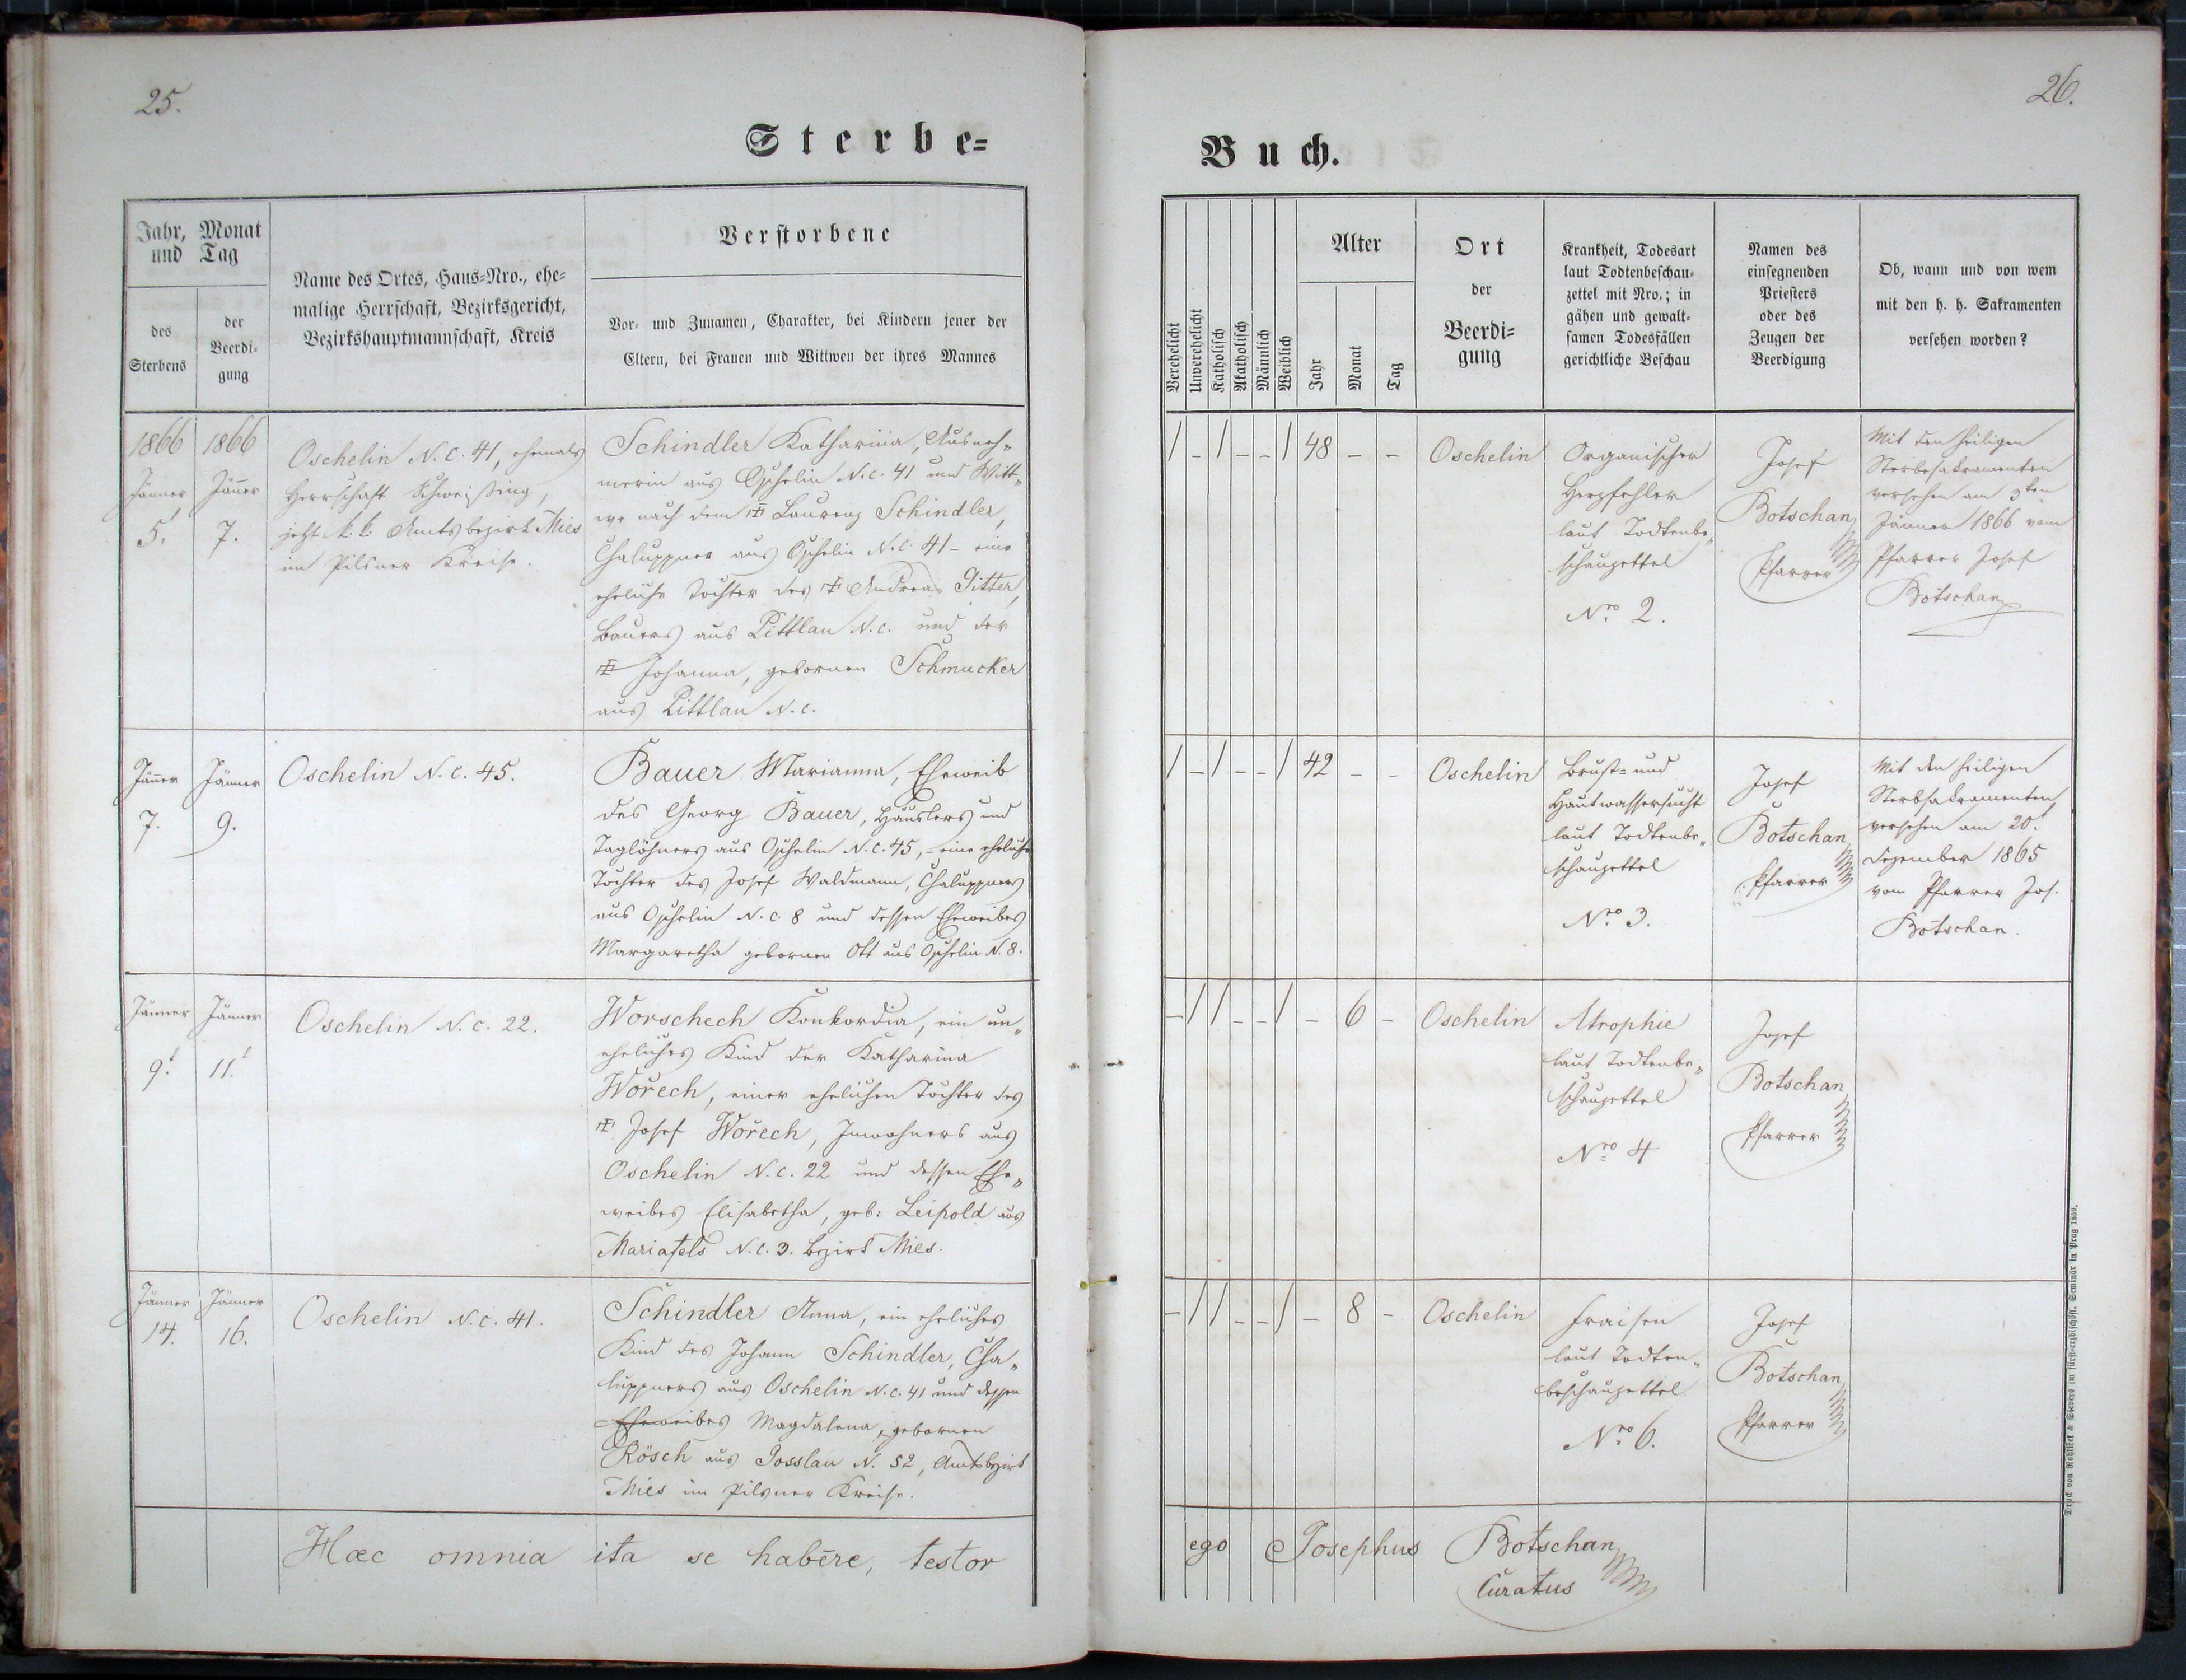 25.
26.
Sterbe=
Buch.
Jahr, Monat
und Tag
des
Sterbens
der
Beerdi=
gung
Name des Ortes, Haus=Nro., ehe=
malige Herrschaft, Bezirksgericht,
Bezirkshauptmannschaft, Kreis
Verstorbene
Vor= und Zunamen, Charakter, bei Kindern jener der
Eltern, bei Frauen und Wittwen der ihres Mannes
Verehelicht
Unverehelicht
Katholisch
Akatholisch
Männlich
Weiblich
Alter
Jahr
Monat
Tag
Ort
der
Beerdi=
gung
Krankheit, Todesart
laut Todtenbeschau=
zettel mit Nro.; in
gähen und gewalt=
samen Todesfällen
gerichtliche Beschau
Namen des
einsegnenden
Priesters
oder des
Zeugen der
Beerdigung
Ob, wann und von wem
mit den h. h. Sakramenten
versehen worden?
1866
Jänner
5.
1866
Jänner
7.
Oschelin N. C. 41, ehemals
Herrschaft Schweißing,
jetzt k. k. Amtsbezirk Mies
im Pilsner Kreise.
Schindler Katharina, Ausneh=
merin aus Oschelin N. c. 41 und Witt=
we nach dem ☩ Laurenz Schindler,
Chaluppner aus Oschelin N. C. 41 – eine
eheliche Tochter des ☩ Andreas Gitter,
Bauers aus Littlau N. c. und der
☩ Johanna, gebornen Schmucker
aus Littlau N. c.
/ – / – – / 48 – –
Oschelin
Organischer
Herzfehler
laut Todtenbe=
schauzettel
Nro 2.
Josef
Botschan
Pfarrer
Mit den heiligen
Sterbesakramenten
versehen am 3ten
Jänner 1866 vom
Pfarrer Josef
Botschan
Jänner
7.
Jänner
9.
Oschelin N. c. 45.
Bauer Marianna, Eheweib
des Georg Bauer, Häuslers und
Taglöhners aus Oschelin N. c. 45, – eine eheliche
Tochter des Josef Waldmann, Chaluppners
aus Oschelin N. c. 8 und dessen Eheweibes
Margaretha gebornen Ott aus Oschelin N. 8.
/ – / – – / 42 – –
Oschelin
Brust= und
Hautwassersucht
laut Todtenbe=
schauzettel
Nro 3.
Josef
Botschan
Pfarrer
Mit den heiligen
Sterbsakramenten
versehen am 20t
Dezember 1865
vom Pfarrer Jos.
Botschan.
Jänner
9t
Jänner
11t
Oschelin N. c. 22.
Worschech Konkordia, ein un=
eheliches Kind der Katharina
Wořech, einer ehelichen Tochter des
☩ Josef Wořech, Inwohners aus
Oschelin N. c. 22 und dessen Ehe=
weibes Elisabetha, geb: Leipold aus
Mariafels N. c. 3. Bezirk Mies.
– / / – – / – 6 –
Oschelin
Atrophie
laut Todtenbe=
schauzettel
Nro 4
Josef
Botschan
Pfarrer
Jänner
14.
Jänner
16.
Oschelin N. c. 41.
Schindler Anna, ein eheliches
Kind des Johann Schindler, Cha=
luppners aus Oschelin N. c. 41 und dessen
Eheweibes Magdalena, gebornen
Rösch aus Gosslau N. 52, Amtsbezirk
Mies im Pilsner Kreise.
– / / – – / – 8 –
Oschelin
Fraisen
laut Todten=
beschauzettel
Nro 6.
Josef
Botschan
Pfarrer
Hæc omnia ita se habēre, testor
ego Josephus Botschan
Curatus
Druck von Rohliček & Sievers im fürst=erzbischöfl. Seminär in Prag 1859.